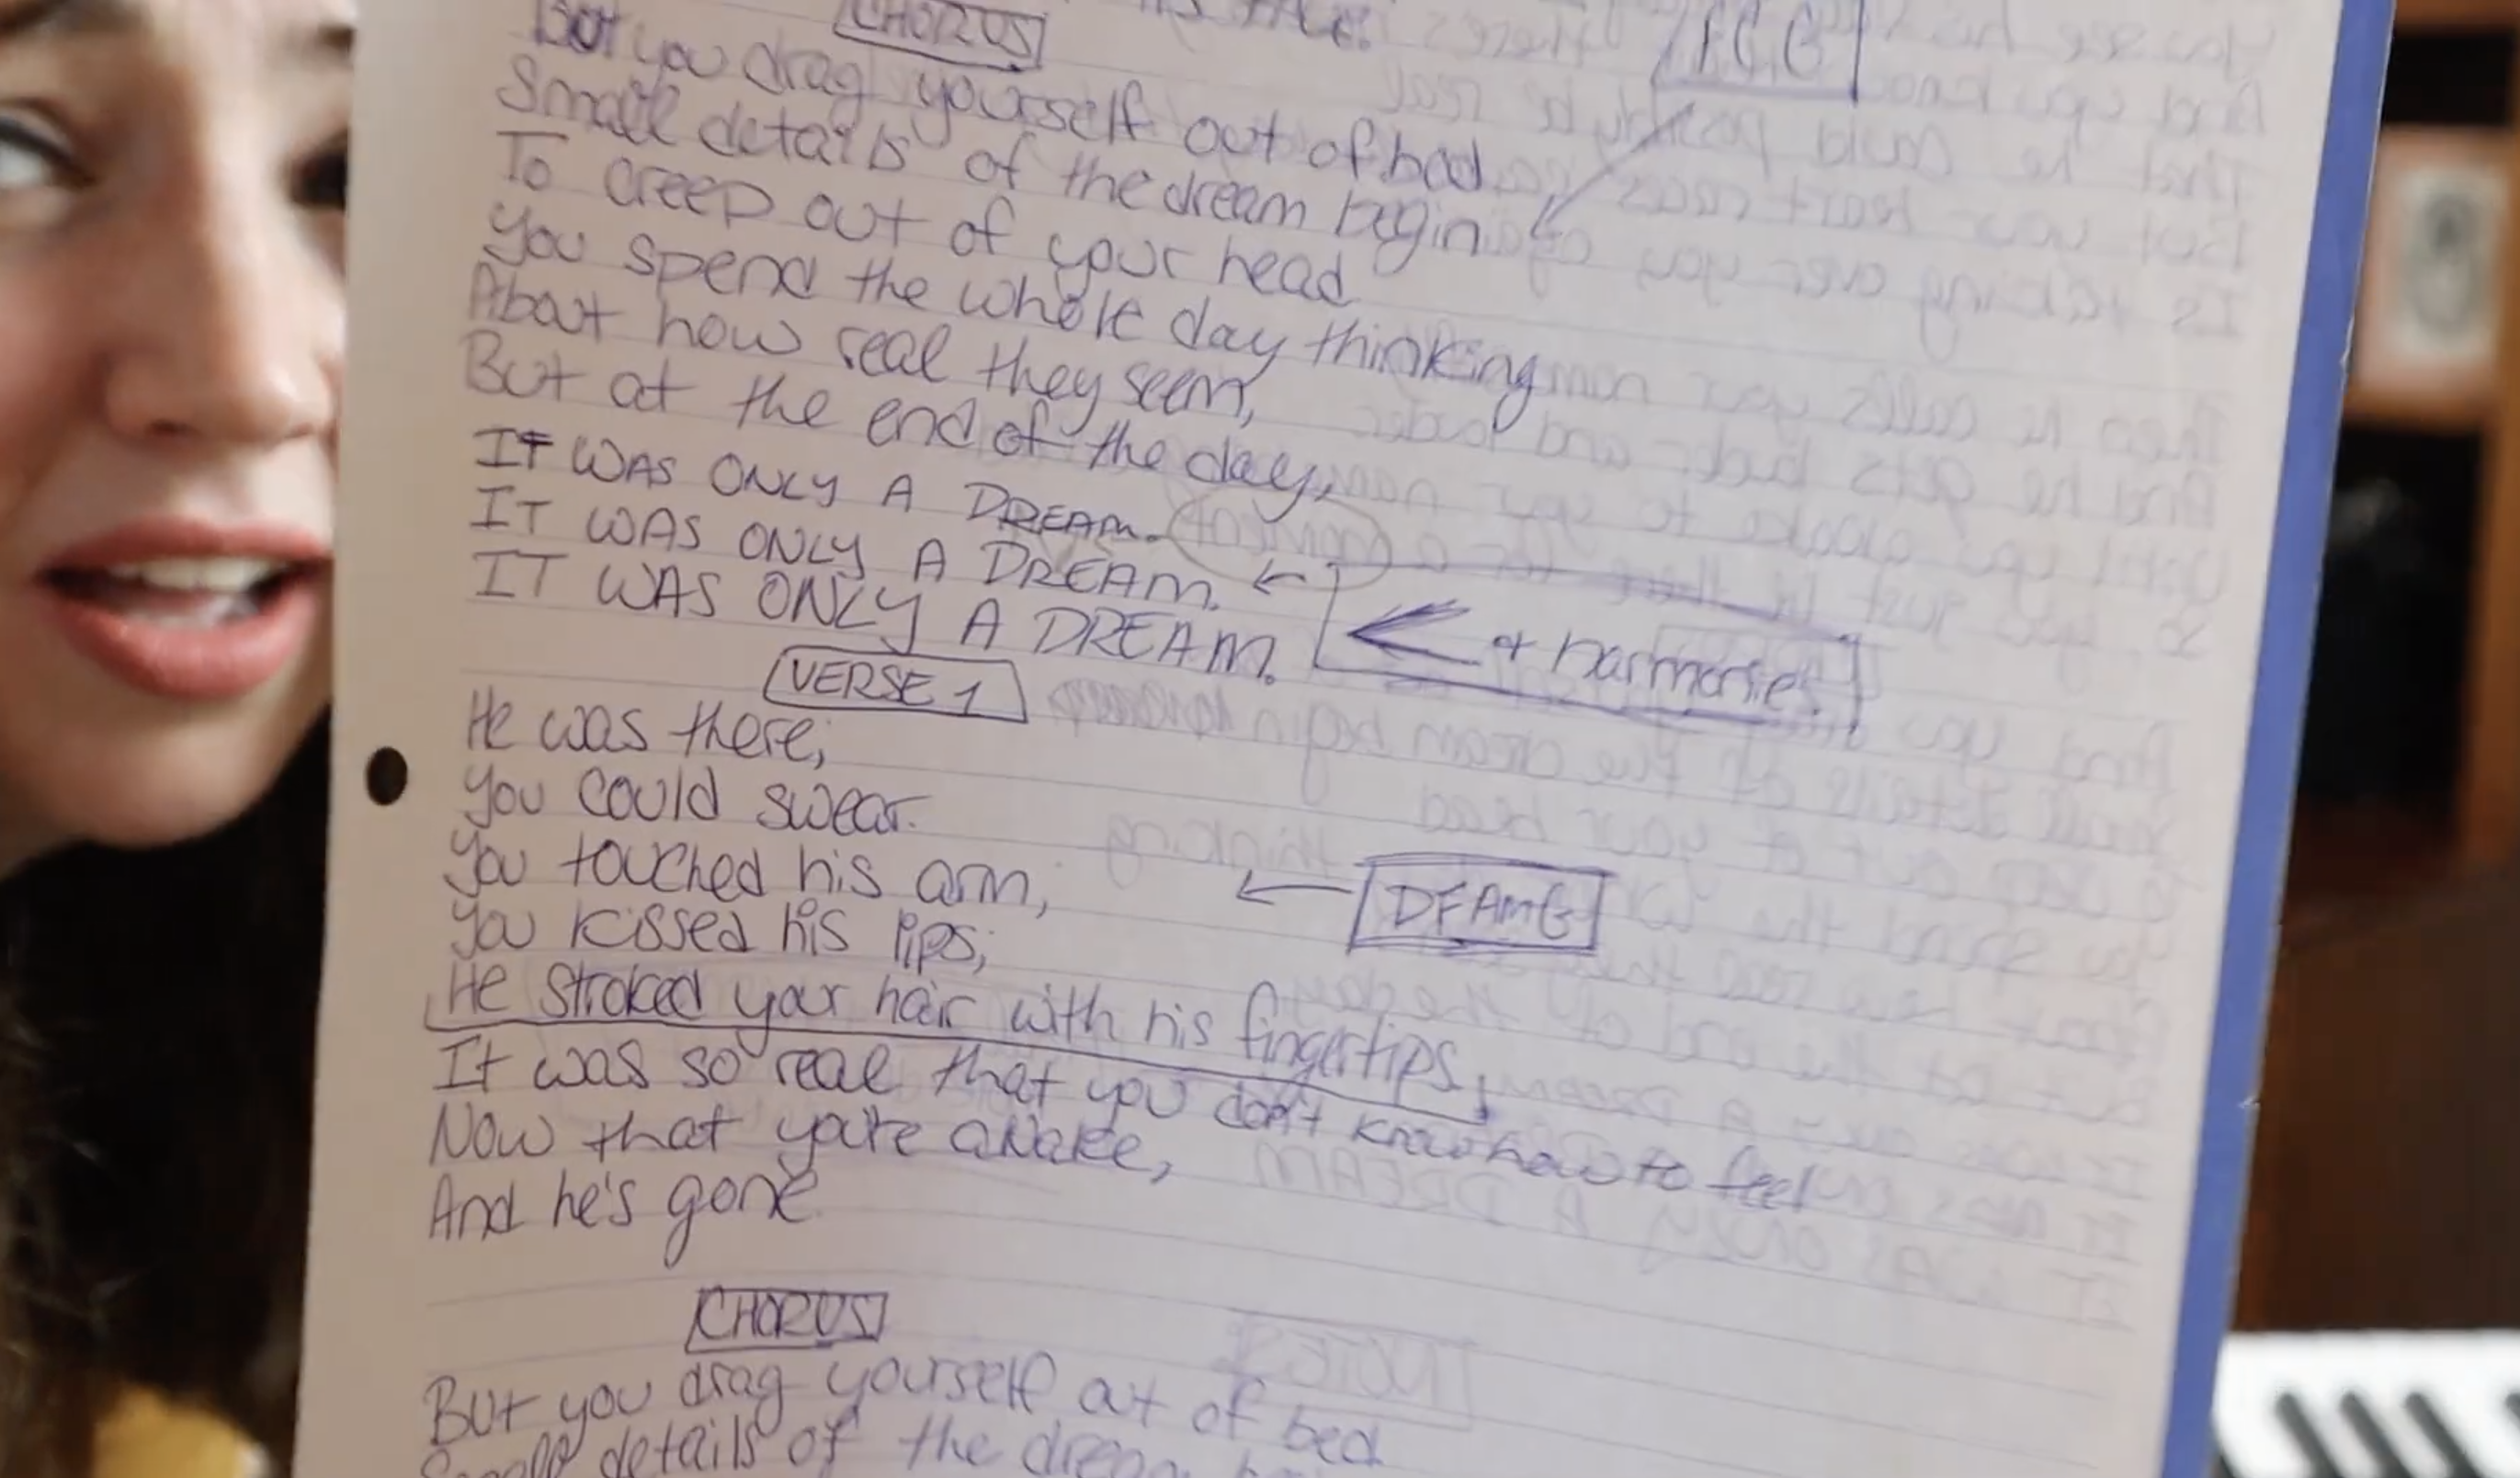 CHORUS
But you drag yourself out of bed
Small details of the dream begin
To creep out of your head
You spend the whole day thinking
About how real they seem,
But at the end of the day,
IT WAS ONLY A DREAM.
IT WAS ONLY A DREAM.
IT WAS ONLY A DREAM.
+ harmonies
VERSE 1
He was there,
You could swear.
You touched his arm,
You kissed his lips,
DFAmG
He stroked your hair with his fingertips,
It was so real that you don't know how to feel
Now that you're awake,
And he's gone.
CHORUS
But you drag yourself out of bed
details of the dream